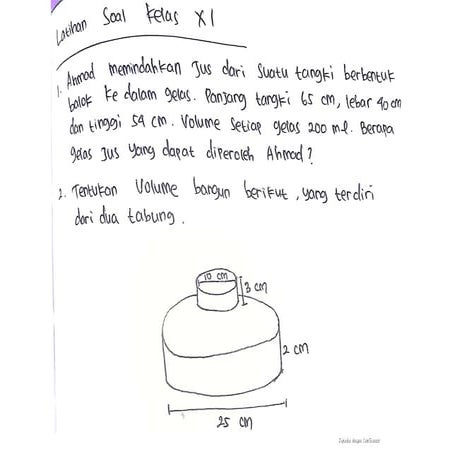 Latihan Soal Kelas XI
1. Ahmad memindahkan Jus dari Suatu tangki berbentuk
balok ke dalam gelas. Panjang tangki 65 cm, lebar 40 cm
dan tinggi 54 cm. Volume Setiap gelas 200 ml. Berapa
gelas Jus yang dapat diperoleh Ahmad?
2. Tentukan Volume bangun berikut, yang terdiri
dari dua tabung.
10 cm
3 cm
2 cm
25 cm